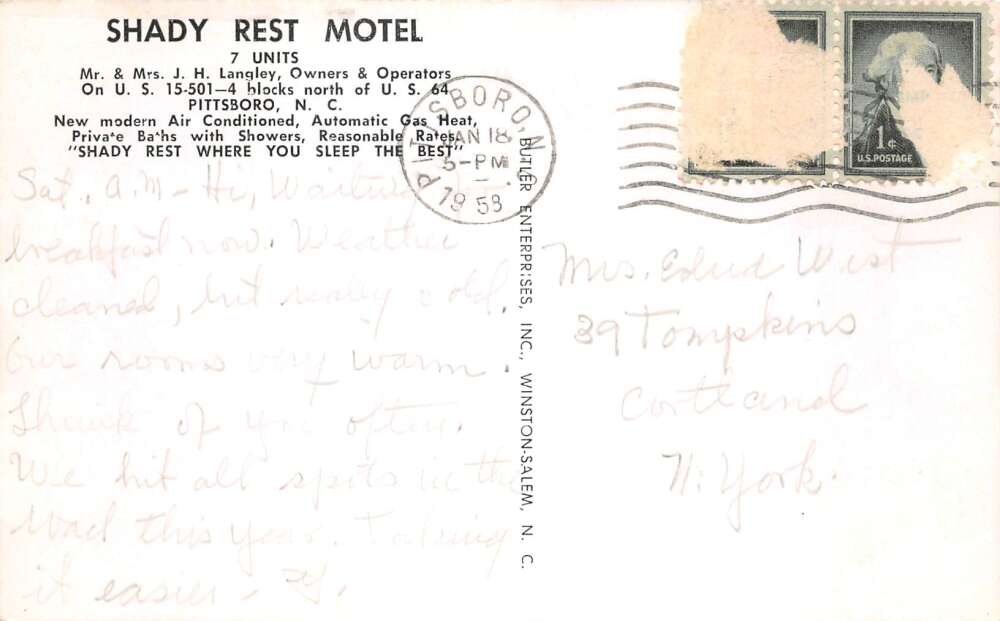 SHADY REST MOTEL
7 UNITS
Mr. & Mrs. J. H. Langley, Owners & Operators
On U. S. 15-501—4 blocks north of U. S. 64
PITTSBORO, N. C.
New modern Air Conditioned, Automatic Gas Heat,
Private Baths with Showers, Reasonable Rates.
"SHADY REST WHERE YOU SLEEP THE BEST"
PITTSBORO, N.C.
JAN 18
5-PM
1958
1¢
U.S. POSTAGE
BUTLER ENTERPRISES, INC., WINSTON-SALEM, N. C.
Sat. A.M - Hi, Waiting
breakfast now. Weather
cleared, but really cold.
Our rooms very warm.
Think of you often.
We hit all spots in the
road this year. Taking
it easier -
Mrs. Edna West
39 Tompkins
Cortland
N. York.